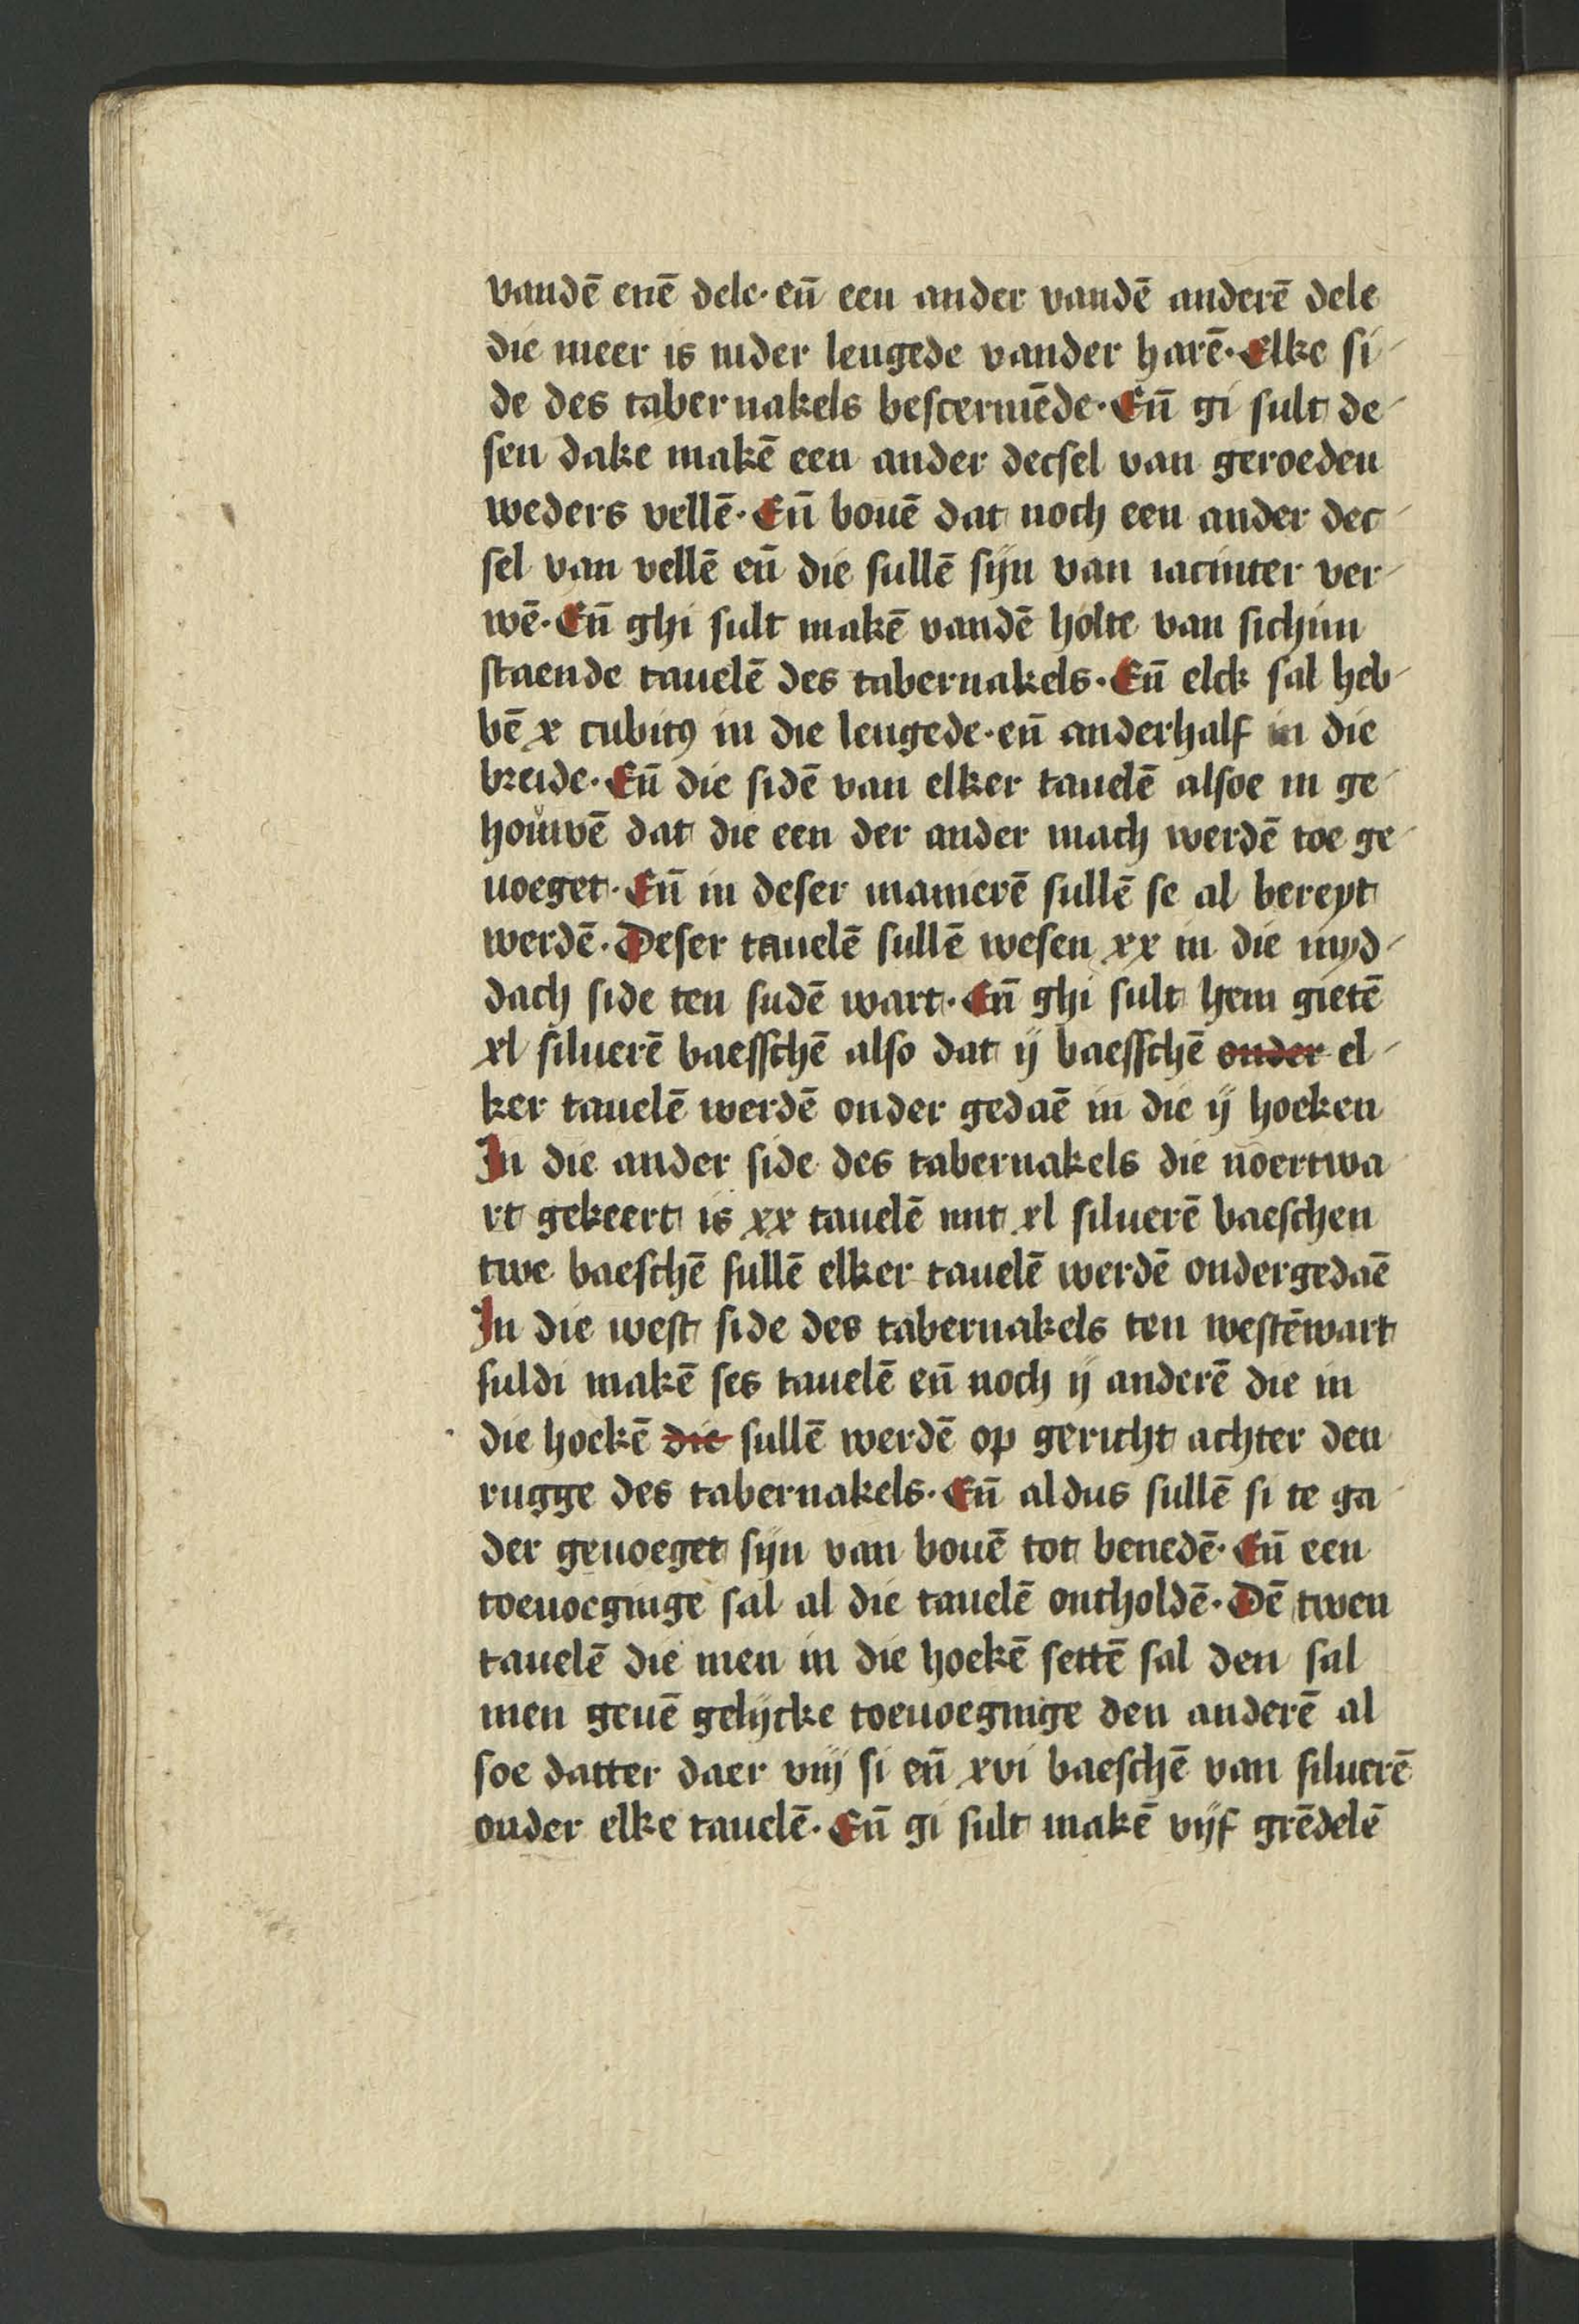 vandē enē dele· eñ een ander vandē anderē dele
die meer is inder lengede vander harē· Elke si-
de des tabernakels bescermēde· Eñ gi sult de-
sen dake makē een ander decsel van geroeden
weders vellē· Eñ bouē dat noch een ander dec-
sel van vellē eñ die sullē sijn van iacinter ver-
wē· Eñ ghi sult makē vandē holte van sichim
staende tauelē des tabernakels· Eñ elck sal heb-
bē x cubitꝰ in die lengede· eñ anderhalf in die
breide· Eñ die sidē van elker tauelē alsoe in ge-
houwē dat die een der ander mach werdē toe ge-
uoeget· Eñ in deser manierē sullē se al bereyt
werdē· Deser tauelē sullē wesen xx in die myd-
dach side ten sudē wart· Eñ ghi sult hem gietē
xl siluerē baesschē also dat ij baesschē onder el-
ker tauelē werdē onder gedaē in die ij hoeken
In die ander side des tabernakels die noertwa-
rt gekeert is xx tauelē mit xl siluerē baeschen
twe baeschē sullē elker tauelē werdē ondergedaē
In die west side des tabernakels ten westēwart
suldi makē ses tauelē eñ noch ij anderē die in
die hoekē die sullē werdē op gericht achter den
rugge des tabernakels· Eñ aldus sullē si te ga-
der geuoeget sijn van bouē tot benedē· Eñ een
toeuoeginge sal al die tauelē ontholdē· Dē twen
tauelē die men in die hoekē settē sal den sal
men geuē gelijcke toeuoeginge den anderē al
soe datter daer viij si eñ xvi baeschē van siluerē
onder elke tauelē· Eñ gi sult makē vijf grēdelē